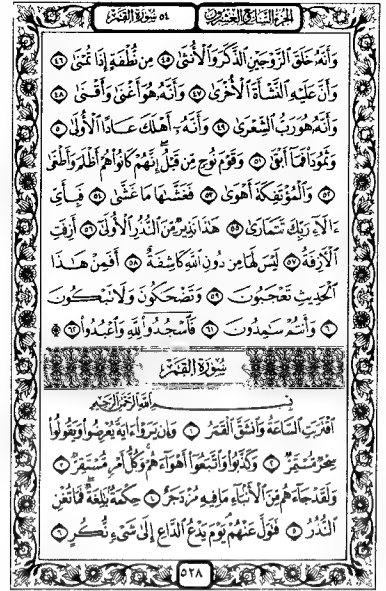 الجزء السابع والعشرون
٥٤ سورة القمر
وَأَنَّهُۥ خَلَقَ ٱلزَّوْجَيْنِ ٱلذَّكَرَ وَٱلْأُنثَىٰ ٤٥ مِن نُّطْفَةٍ إِذَا تُمْنَىٰ ٤٦
وَأَنَّ عَلَيْهِ ٱلنَّشْأَةَ ٱلْأُخْرَىٰ ٤٧ وَأَنَّهُۥ هُوَ أَغْنَىٰ وَأَقْنَىٰ ٤٨
وَأَنَّهُۥ هُوَ رَبُّ ٱلشِّعْرَىٰ ٤٩ وَأَنَّهُۥٓ أَهْلَكَ عَادًا ٱلْأُولَىٰ ٥٠
وَثَمُودَا۟ فَمَآ أَبْقَىٰ ٥١ وَقَوْمَ نُوحٍ مِّن قَبْلُ إِنَّهُمْ كَانُوا۟ هُمْ أَظْلَمَ وَأَطْغَىٰ
٥٢ وَٱلْمُؤْتَفِكَةَ أَهْوَىٰ ٥٣ فَغَشَّىٰهَا مَا غَشَّىٰ ٥٤ فَبِأَىِّ
ءَالَآءِ رَبِّكَ تَتَمَارَىٰ ٥٥ هَٰذَا نَذِيرٌ مِّنَ ٱلنُّذُرِ ٱلْأُولَىٰٓ ٥٦ أَزِفَتِ
ٱلْآزِفَةُ ٥٧ لَيْسَ لَهَا مِن دُونِ ٱللَّهِ كَاشِفَةٌ ٥٨ أَفَمِنْ هَٰذَا
ٱلْحَدِيثِ تَعْجَبُونَ ٥٩ وَتَضْحَكُونَ وَلَا تَبْكُونَ
٦٠ وَأَنتُمْ سَٰمِدُونَ ٦١ فَٱسْجُدُوا۟ لِلَّهِ وَٱعْبُدُوا۟ ۩ ٦٢
سُورَةُ القَمَر
بِسْمِ ٱللَّهِ ٱلرَّحْمَٰنِ ٱلرَّحِيمِ
ٱقْتَرَبَتِ ٱلسَّاعَةُ وَٱنشَقَّ ٱلْقَمَرُ ١ وَإِن يَرَوْا۟ ءَايَةً يُعْرِضُوا۟ وَيَقُولُوا۟
سِحْرٌ مُّسْتَمِرٌّ ٢ وَكَذَّبُوا۟ وَٱتَّبَعُوٓا۟ أَهْوَآءَهُمْ وَكُلُّ أَمْرٍ مُّسْتَقِرٌّ ٣
وَلَقَدْ جَآءَهُم مِّنَ ٱلْأَنۢبَآءِ مَا فِيهِ مُزْدَجَرٌ ٤ حِكْمَةٌۢ بَٰلِغَةٌ فَمَا تُغْنِ
ٱلنُّذُرُ ٥ فَتَوَلَّ عَنْهُمْ يَوْمَ يَدْعُ ٱلدَّاعِ إِلَىٰ شَىْءٍ نُّكُرٍ ٦
٥٢٨